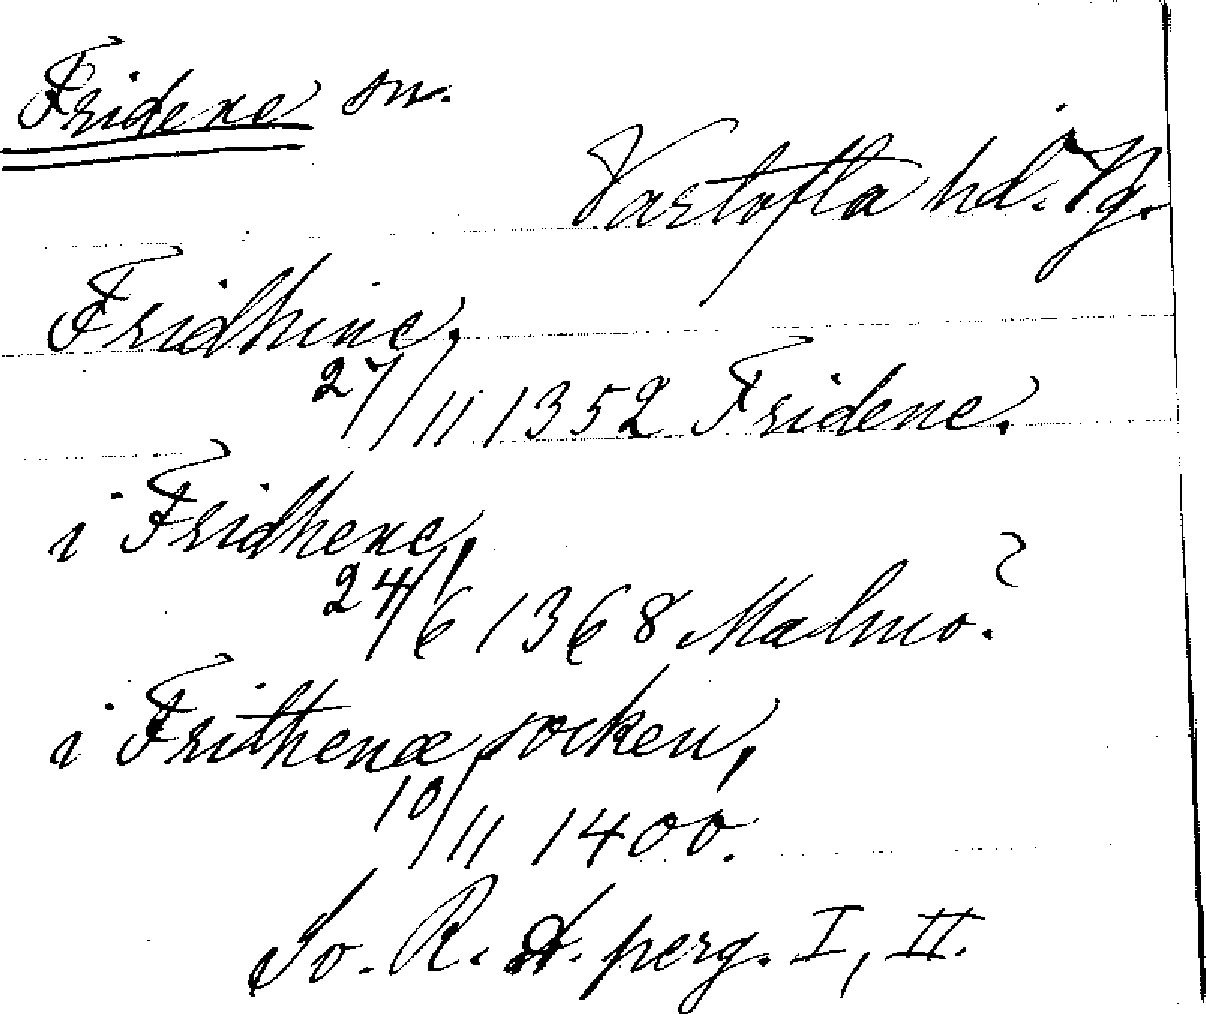 Fridene sn.
Vartofta hd. Vg.
Fridhine,
27/11 1352 Fridene.
i Fridhene,
24/6 1368 Malmo.?
i Frithenæ socken,
10/11 1400.
Sv. R. A. perg. I, II.